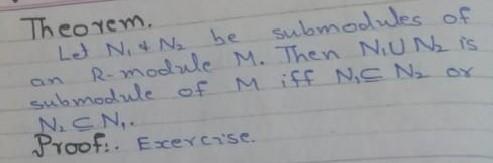 Theorem.
Let N₁ & N₂ be submodules of
an R-module M. Then N₁∪N₂ is
submodule of M iff N₁⊆N₂ or
N₂⊆N₁.
Proof:. Excercise.